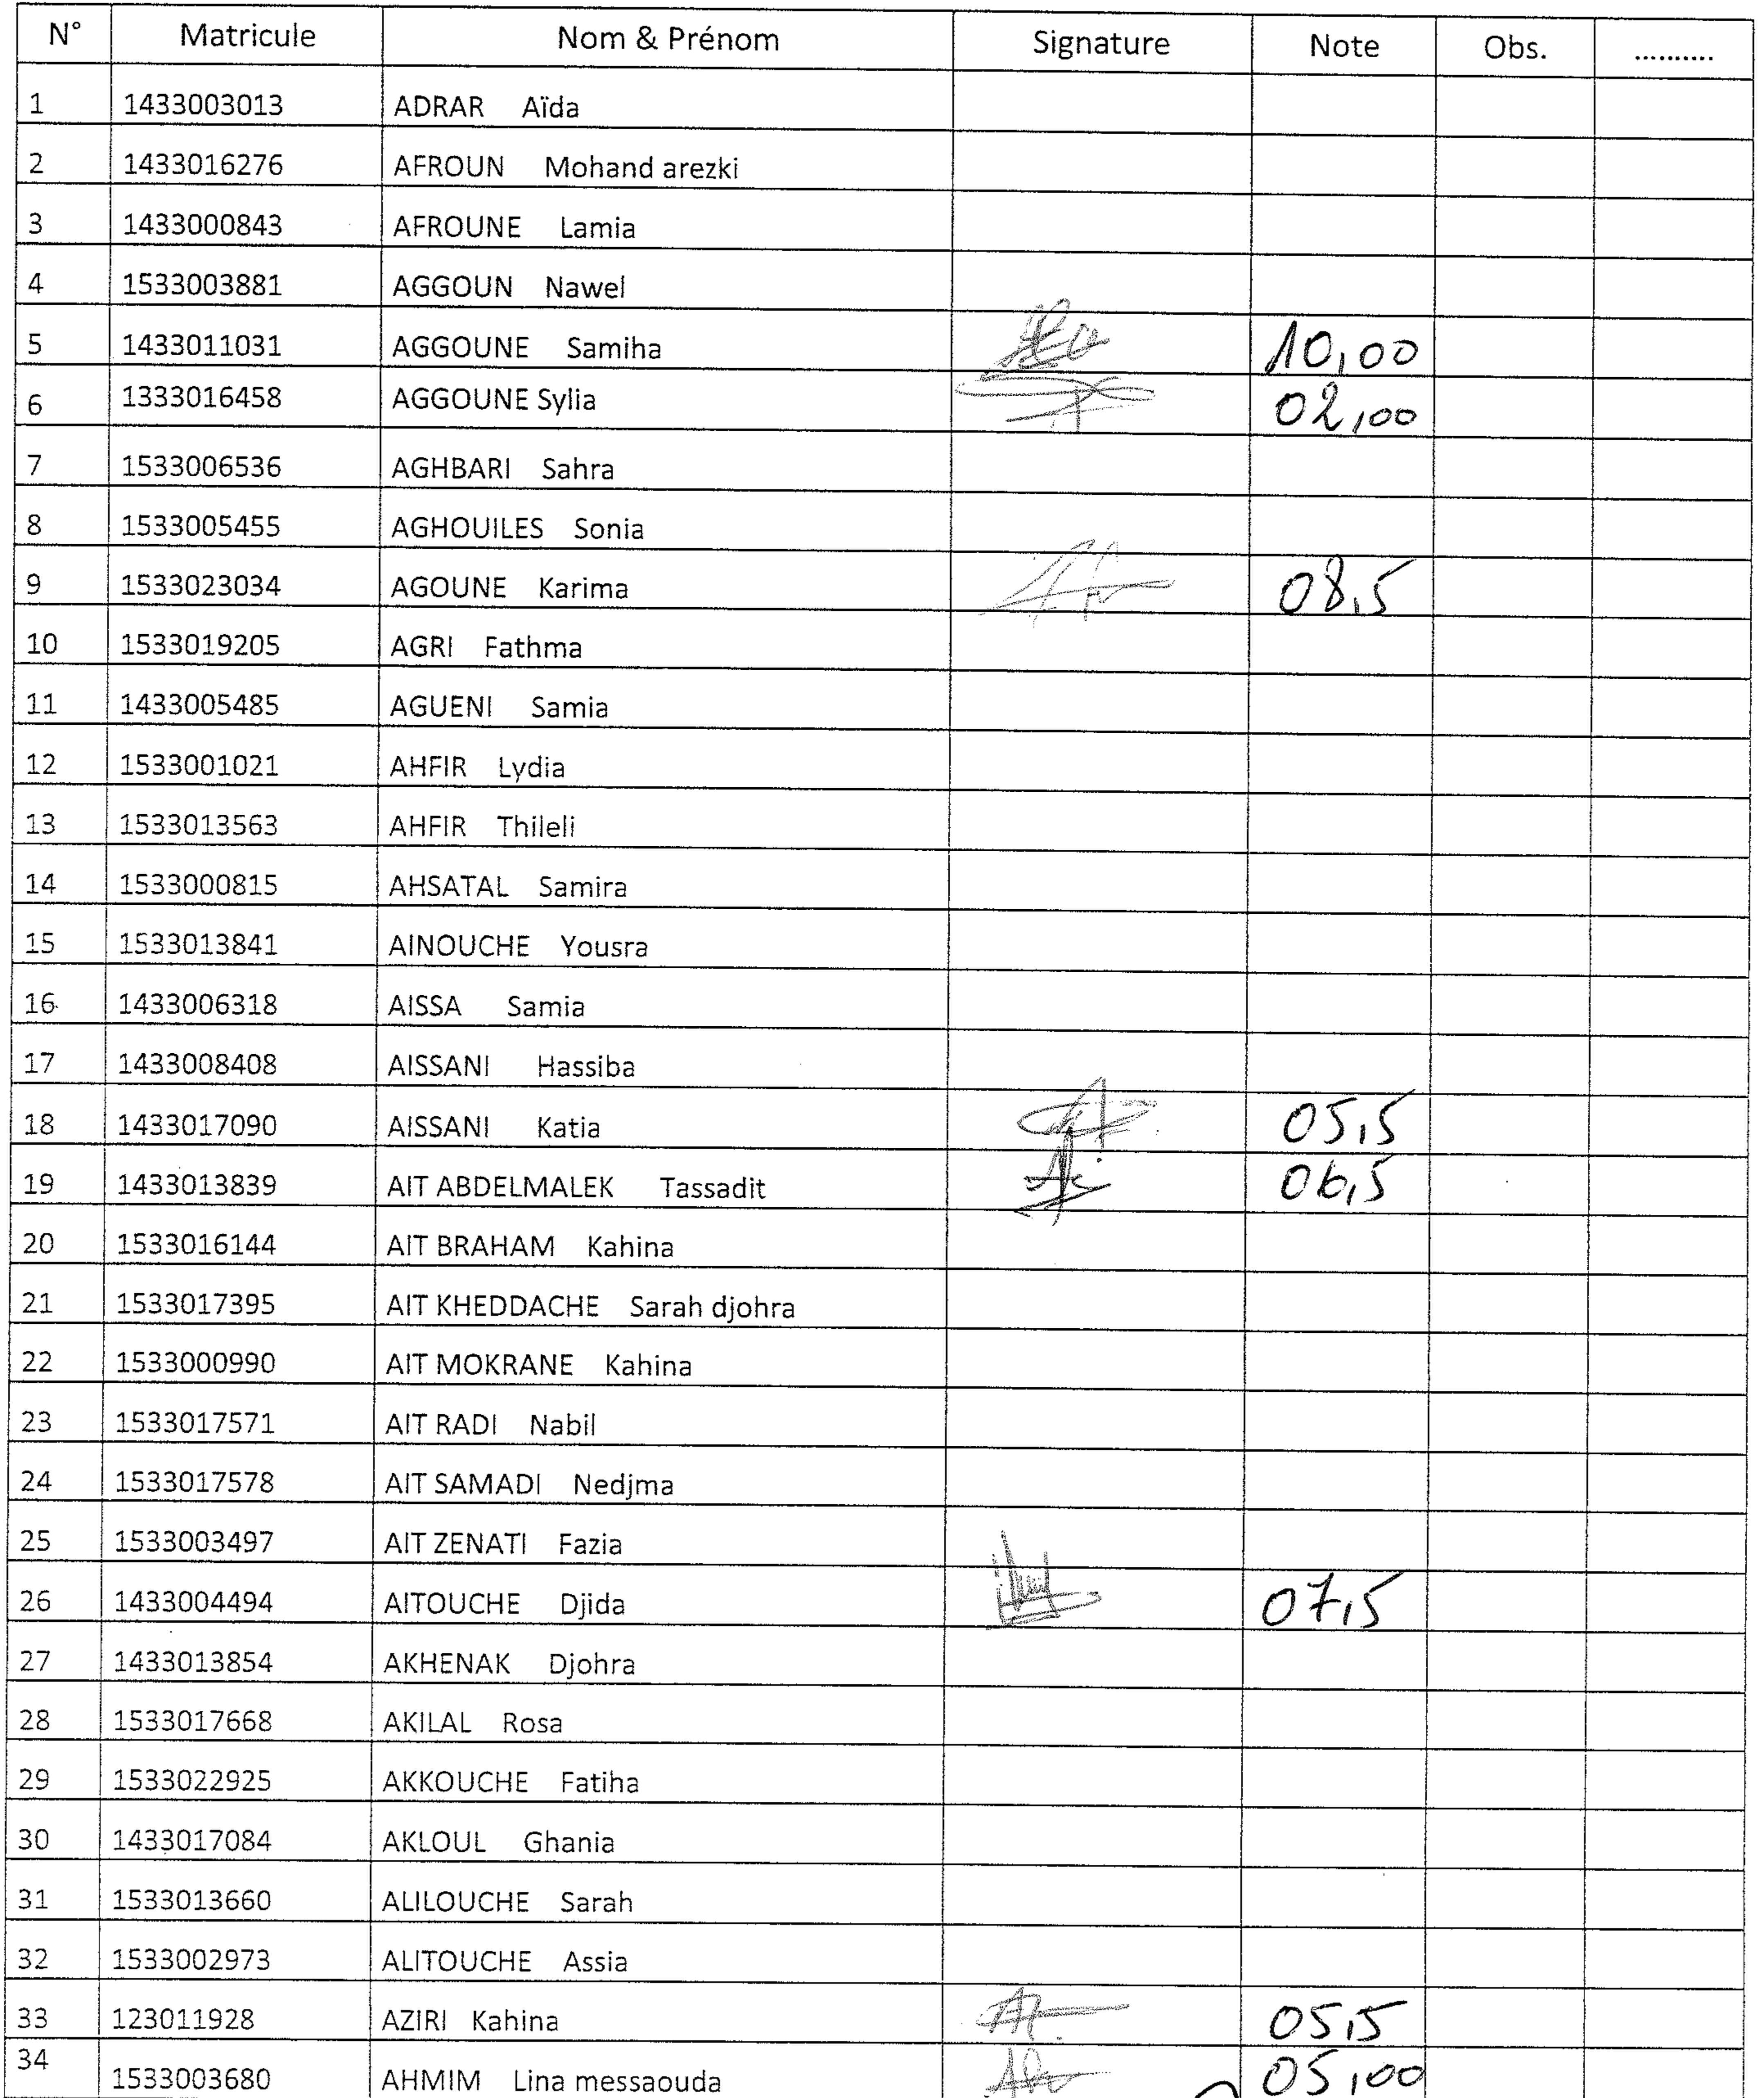 N° Matricule Nom & Prénom Signature Note Obs. ..........
1 1433003013 ADRAR Aïda
2 1433016276 AFROUN Mohand arezki
3 1433000843 AFROUNE Lamia
4 1533003881 AGGOUN Nawel
5 1433011031 AGGOUNE Samiha 10,00
6 1333016458 AGGOUNE Sylia 02,00
7 1533006536 AGHBARI Sahra
8 1533005455 AGHOUILES Sonia
9 1533023034 AGOUNE Karima 08,5
10 1533019205 AGRI Fathma
11 1433005485 AGUENI Samia
12 1533001021 AHFIR Lydia
13 1533013563 AHFIR Thileli
14 1533000815 AHSATAL Samira
15 1533013841 AINOUCHE Yousra
16 1433006318 AISSA Samia
17 1433008408 AISSANI Hassiba
18 1433017090 AISSANI Katia 05,5
19 1433013839 AIT ABDELMALEK Tassadit 06,5
20 1533016144 AIT BRAHAM Kahina
21 1533017395 AIT KHEDDACHE Sarah djohra
22 1533000990 AIT MOKRANE Kahina
23 1533017571 AIT RADI Nabil
24 1533017578 AIT SAMADI Nedjma
25 1533003497 AIT ZENATI Fazia
26 1433004494 AITOUCHE Djida 07,5
27 1433013854 AKHENAK Djohra
28 1533017668 AKILAL Rosa
29 1533022925 AKKOUCHE Fatiha
30 1433017084 AKLOUL Ghania
31 1533013660 ALILOUCHE Sarah
32 1533002973 ALITOUCHE Assia
33 123011928 AZIRI Kahina 05,5
34 1533003680 AHMIM Lina messaouda 05,00